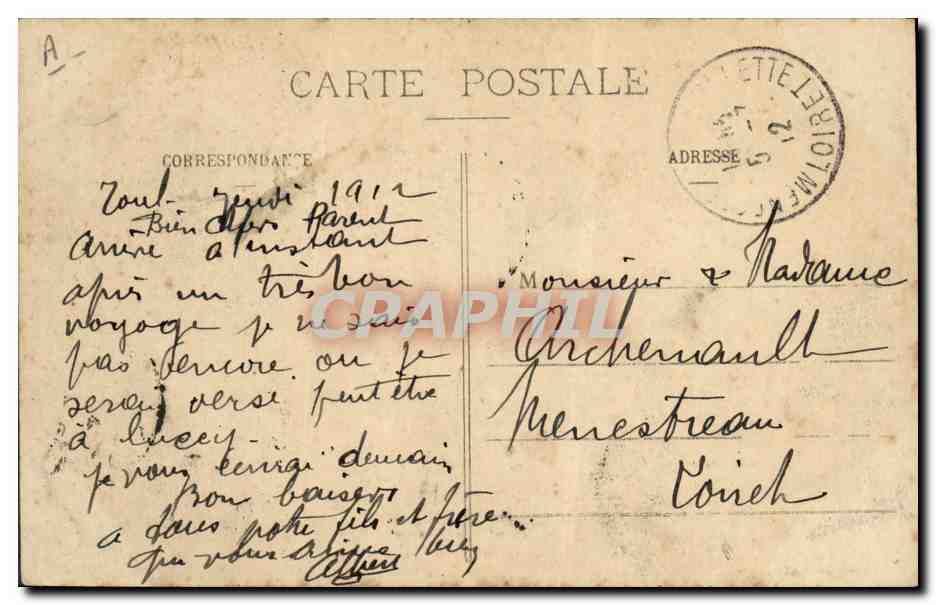 A
CARTE POSTALE
CORRESPONDANCE
Toul- Jeudi 1912
Bien chers Parent
Arrivé a l'instant
après un très bon
voyage je ne sais
pas encore ou je
serai versé peut être
à Lucey-
je vous demain
Bon baisers
a tous votre fils et frère...
qui vous aime
Albert
ADRESSE
ETTE LOIRET
5 - 12
Monsieur & Madame
Archenault
Menestreau
Loiret
CPAPHIL